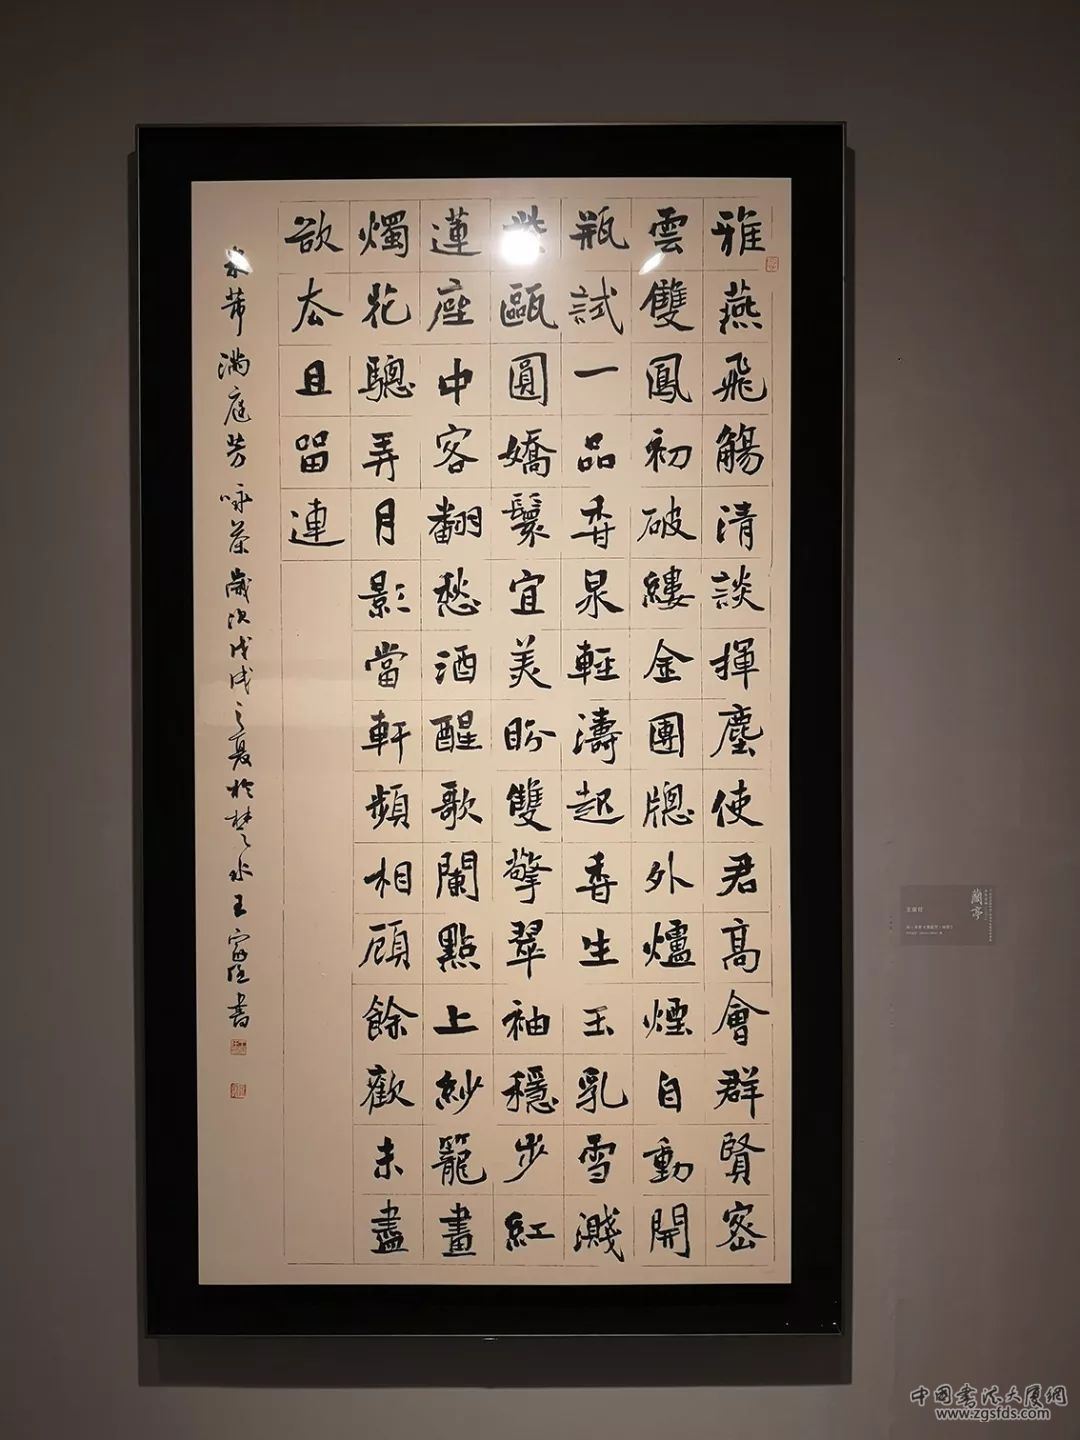 雅燕飛觴清談揮塵使君高會群賢密
雲雙鳳初破縷金團牕外爐煙自動開
瓶試一品香泉輕濤起香生玉乳雪濺
紫甌圓嬌鬟宜美盼雙擎翠袖穩步紅
蓮座中客翻愁酒醒歌闌點上紗籠畫
燭花驄弄月影當軒頻相顧餘歡未盡
欲去且留連
米芾滿庭芳咏茶歲次戊戌之夏於楚水王家書
蘭亭
中國書法大厦網
www.zgsfds.com